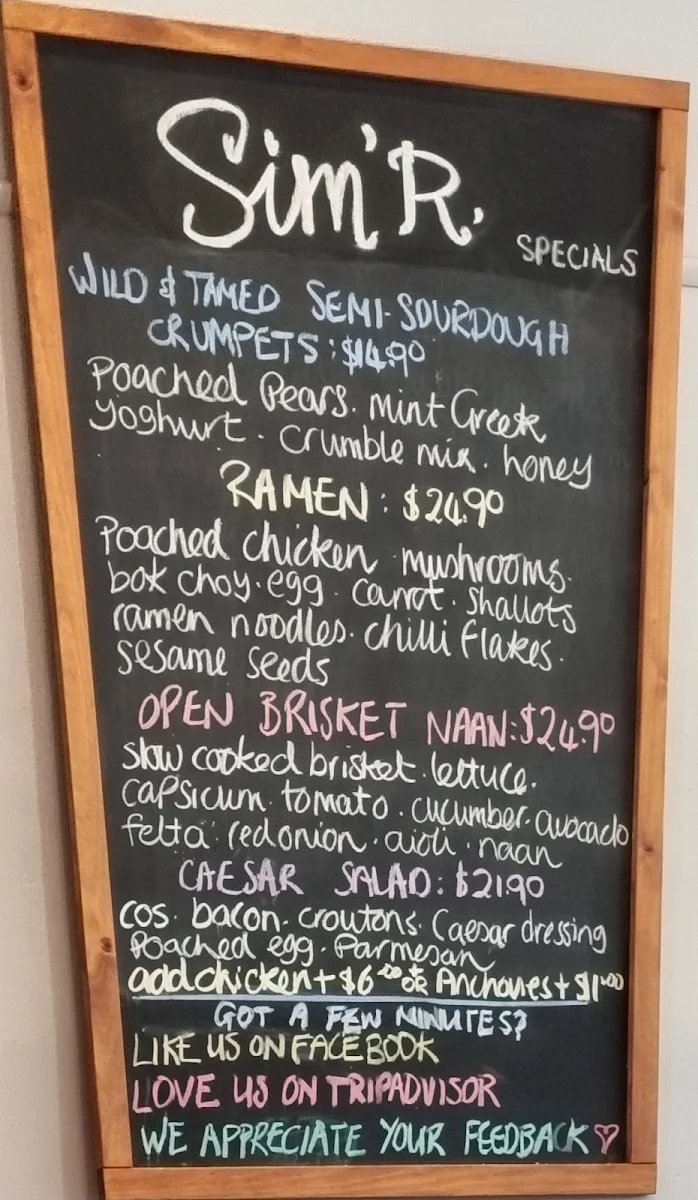 Sim'R.
SPECIALS
WILD & TAMED SEMI-SOURDOUGH
CRUMPETS: $14.90
Poached Pears. mint Greek
yoghurt. crumble mix. honey
RAMEN: $24.90
Poached chicken. mushrooms.
bok choy. egg. carrot. shallots
ramen noodles. chilli flakes.
sesame seeds
OPEN BRISKET NAAN: $24.90
slow cooked brisket. lettuce.
capsicum. tomato. cucumber. avocado
fetta. red onion. aioli. naan
CAESAR SALAD: $21.90
cos. bacon. croutons. Caesar dressing
Poached egg. Parmesan
add chicken + $6.00 OR Anchovies + $1.00
GOT A FEW MINUTES?
LIKE US ON FACEBOOK
LOVE US ON TRIPADVISOR
WE APPRECIATE YOUR FEEDBACK ♡